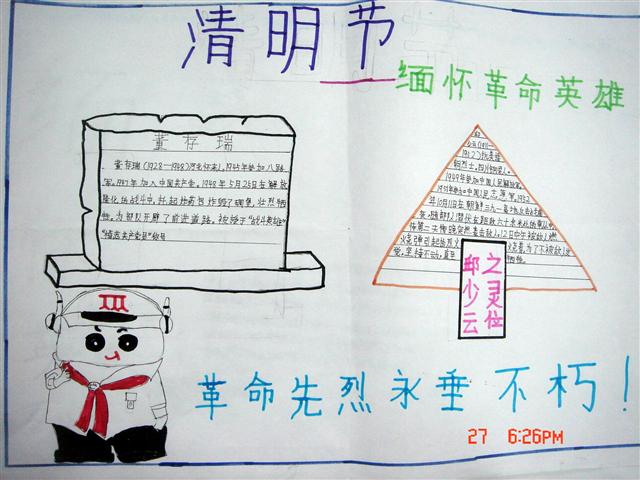 清明节
缅怀革命英雄
董存瑞
董存瑞(1928—1948)河北怀来人,1945年参加八路
军,1947年加入中国共产党。1948年5月25日在解放
隆化的战斗中,托起炸药包炸毁了碉堡,壮烈牺
牲,为部队开辟了前进道路。被授予"战斗英雄"
"模范共产党员"称号
1949年参加中国人民解放军。
1951年参加中国人民志愿军。1952
年10月11日在朝鲜三九一高地
邱少云
之灵位
革命先烈永垂不朽!
27 6:26PM